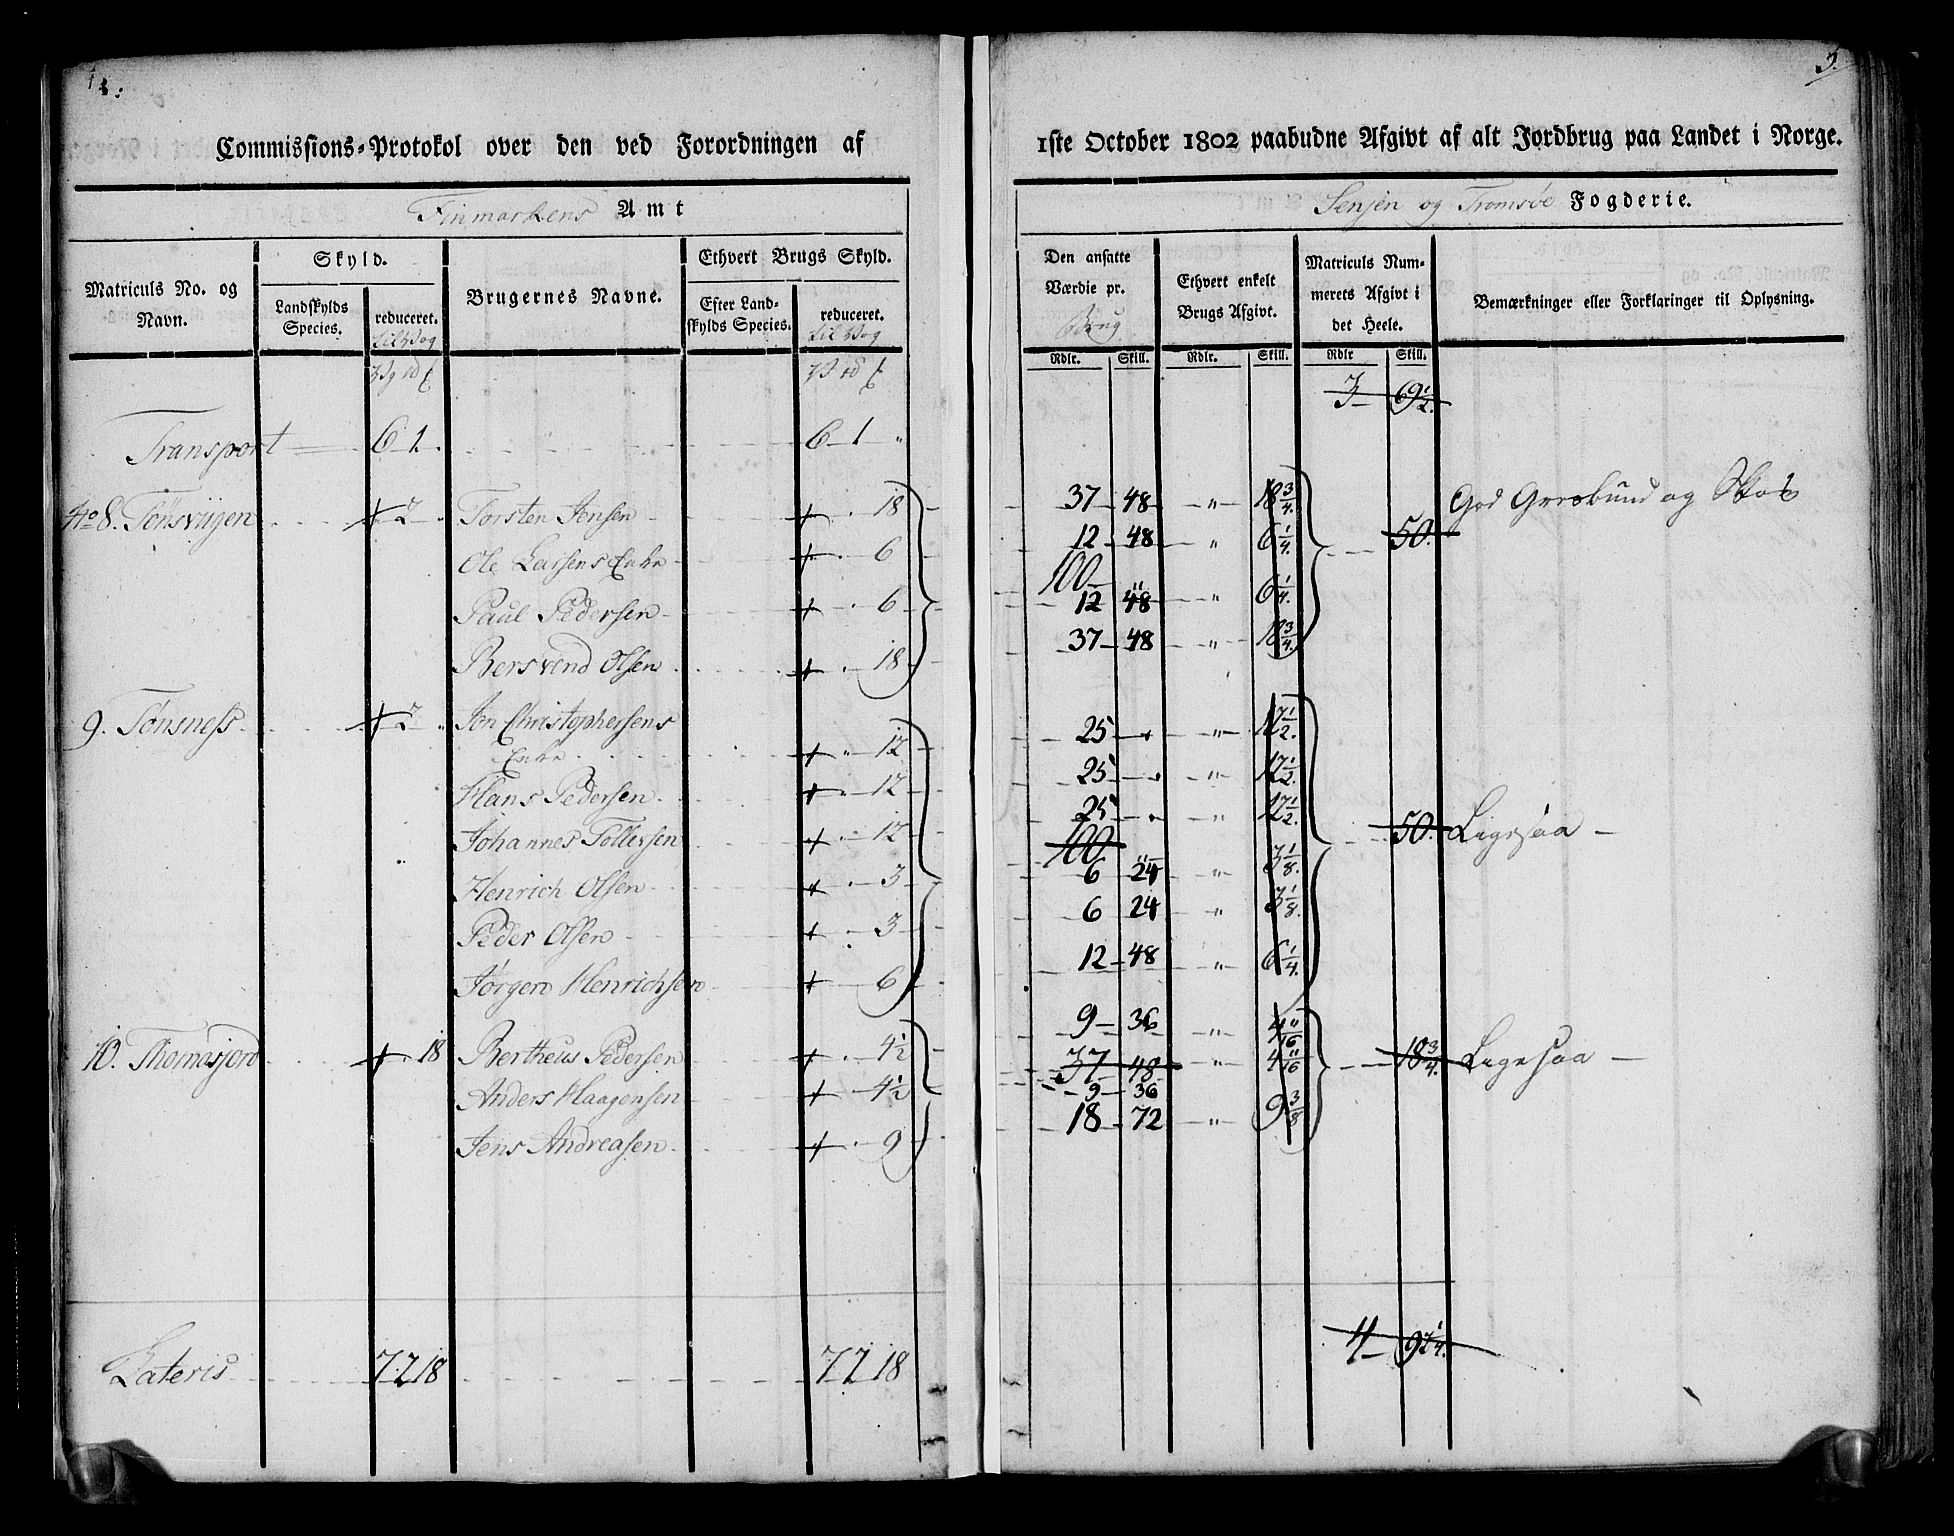 3.
Commissions-Protokol over den ved Forordningen af 1ste October 1802 paabudne Afgivt af alt Jordbrug paa Landet i Norge.
Finmarkens Amt
Senjen og Tromsöe Fogderie.
Matriculs No. og Navn.
Skyld.
Landskylds Species.
reduceret. til Vog
Brugernes Navne.
Ethvert Brugs Skyld.
Efter Landskylds Species.
reduceret. til Vog
Den ansatte Værdie pr. Brug
Rdlr. Skill.
Ethvert enkelt Brugs Afgivt.
Rdlr. Skill.
Matriculs Nummerets Afgivt i det Heele.
Rdlr Skill.
Bemærkninger eller Forklaringer til Oplysning.
3 6 9½.
Transport 6 1 . 6 1 "
No 8. Tönsvigen + 2 . Torsten Jensen + . 18 37 48 " 18¾.
Ole Larsens Enke + . 6 12 48 " 6¼. 50.
100 "
Paul Pedersen + . 6 12 48 " 6¼.
Bersvend Olsen + . 18 37 48 " 18¾.
God Græsbund og Skov
9. Tönsness + 2 " Jon Christophersens
Enke + " 12 25 . " 12½.
Hans Pedersen + . 12 25 . " 12½.
Johannes Tollefsen + . 12 25 . " 12½. 50. Ligesaa
100 "
Henrich Olsen + . 3 6 24 " 3⅛.
Peder Olsen + . 3 6 24 " 3⅛.
Jörgen Henrichsen + 6 12 48 " 6¼.
10. Thomasjord + 18 Bertheus Pedersen + . 4½ 9 36 " 4 11/16
37 48 18¾. Ligesaa
Anders Haagensen + . 4½ 9 36 " 4 11/16
Jens Andreasen + . 9 18 72 " 9⅜
Lateris 7 2 18 7 2 18 4 9¼.